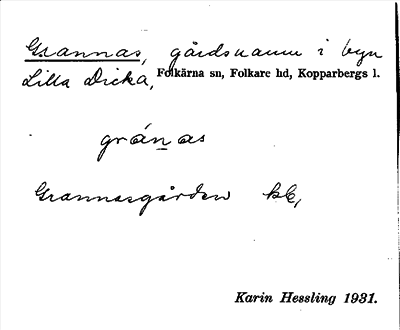 Grannas, gårdsnamn i byn
Lilla Dicka, Folkärna sn, Folkare hd, Kopparbergs l.
gránas
Grannasgården
Karin Hessling 1931.